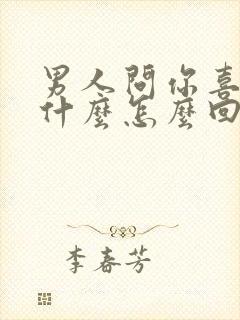 男人問你喜
什麼怎麼回
李春芳